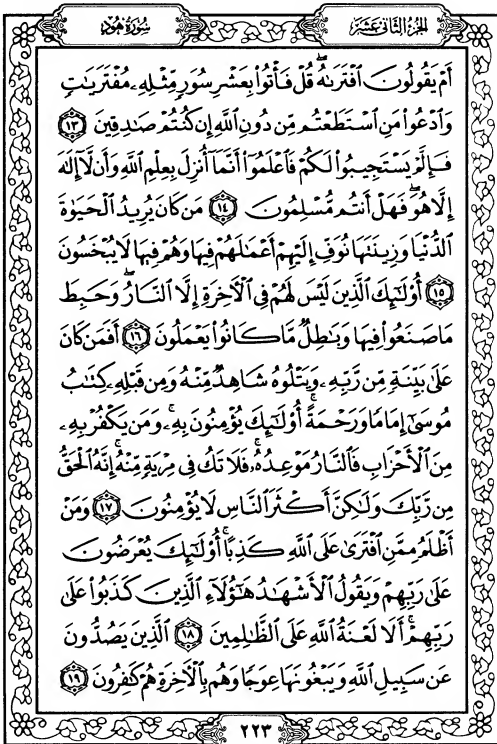 الجزء الثاني عشر
سورة هود
أَمْ يَقُولُونَ ٱفْتَرَىٰهُۖ قُلْ فَأْتُوا۟ بِعَشْرِ سُوَرٍ مِّثْلِهِۦ مُفْتَرَيَـٰتٍ
وَٱدْعُوا۟ مَنِ ٱسْتَطَعْتُم مِّن دُونِ ٱللَّهِ إِن كُنتُمْ صَـٰدِقِينَ ١٣
فَإِلَّمْ يَسْتَجِيبُوا۟ لَكُمْ فَٱعْلَمُوٓا۟ أَنَّمَآ أُنزِلَ بِعِلْمِ ٱللَّهِ وَأَن لَّآ إِلَـٰهَ
إِلَّا هُوَۖ فَهَلْ أَنتُم مُّسْلِمُونَ ١٤ مَن كَانَ يُرِيدُ ٱلْحَيَوٰةَ
ٱلدُّنْيَا وَزِينَتَهَا نُوَفِّ إِلَيْهِمْ أَعْمَـٰلَهُمْ فِيهَا وَهُمْ فِيهَا لَا يُبْخَسُونَ
١٥ أُو۟لَـٰٓئِكَ ٱلَّذِينَ لَيْسَ لَهُمْ فِى ٱلْـَٔاخِرَةِ إِلَّا ٱلنَّارُۖ وَحَبِطَ
مَا صَنَعُوا۟ فِيهَا وَبَـٰطِلٌ مَّا كَانُوا۟ يَعْمَلُونَ ١٦ أَفَمَن كَانَ
عَلَىٰ بَيِّنَةٍ مِّن رَّبِّهِۦ وَيَتْلُوهُ شَاهِدٌ مِّنْهُ وَمِن قَبْلِهِۦ كِتَـٰبُ
مُوسَىٰٓ إِمَامًا وَرَحْمَةًۚ أُو۟لَـٰٓئِكَ يُؤْمِنُونَ بِهِۦۚ وَمَن يَكْفُرْ بِهِۦ
مِنَ ٱلْأَحْزَابِ فَٱلنَّارُ مَوْعِدُهُۥۚ فَلَا تَكُ فِى مِرْيَةٍ مِّنْهُۚ إِنَّهُ ٱلْحَقُّ
مِن رَّبِّكَ وَلَـٰكِنَّ أَكْثَرَ ٱلنَّاسِ لَا يُؤْمِنُونَ ١٧ وَمَنْ
أَظْلَمُ مِمَّنِ ٱفْتَرَىٰ عَلَى ٱللَّهِ كَذِبًاۚ أُو۟لَـٰٓئِكَ يُعْرَضُونَ
عَلَىٰ رَبِّهِمْ وَيَقُولُ ٱلْأَشْهَـٰدُ هَـٰٓؤُلَآءِ ٱلَّذِينَ كَذَبُوا۟ عَلَىٰ
رَبِّهِمْۚ أَلَا لَعْنَةُ ٱللَّهِ عَلَى ٱلظَّـٰلِمِينَ ١٨ ٱلَّذِينَ يَصُدُّونَ
عَن سَبِيلِ ٱللَّهِ وَيَبْغُونَهَا عِوَجًا وَهُم بِٱلْـَٔاخِرَةِ هُمْ كَـٰفِرُونَ ١٩
٢٢٣